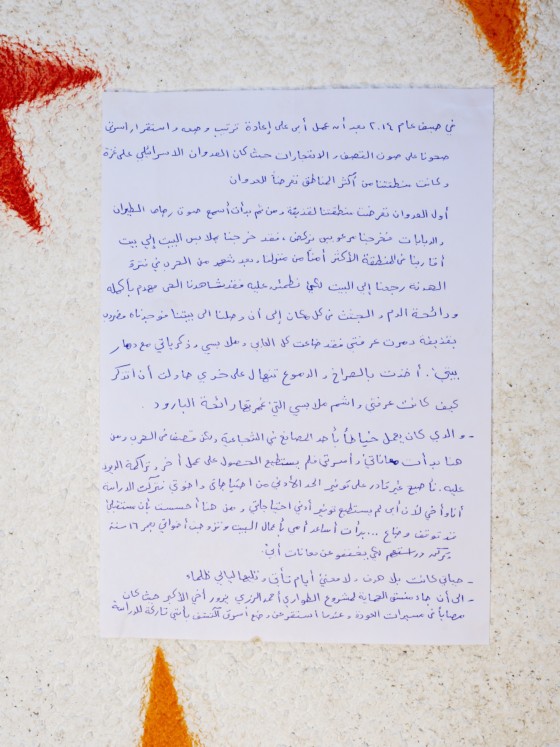 في صيف عام ٢٠١٤ بعد أن عمل أبي على إعادة ترتيب وضعه واستقرار أسرتي
صحونا على صوت القصف والانفجارات حيث كان العدوان الاسرائيلي على غزة
وكانت منطقتنا من أكثر المناطق تعرضاً للعدوان
أول العدوان تعرضت منطقتنا لقذيفة ومن ثم بدأت أسمع صوت رصاص الطيران
والدبابات فخرجنا مرعوبين نركض، فقد خرجنا بملابس البيت إلى بيت
أقاربنا في المنطقة الأكثر أمناً من منزلنا، وبعد شهر من الحرب في فترة
الهدنة رجعنا إلى البيت لكي نطمئن عليه فقد شاهدنا الحي مهدم بأكمله
ورائحة الدم والجثث في كل مكان إلى أن وصلنا الى بيتنا فوجدناه مضروب
بقذيفة دمرت غرفتي فقد ضاعت كل ألعابي وملابسي وذكرياتي مع دمار
بيتي. أخذت بالصراخ والدموع تنهال على خدي حاولت أن أتذكر
كيف كانت غرفتي واشم ملابسي التي غمرتها رائحة البارود.
- والدي كان يعمل خياطاً بأحد المصانع في الشجاعية ولكن قصف في الحرب ومن
هنا بدأت معاناتي وأسرتي فلم يستطيع الحصول على عمل أخر وتراكمة الديون
عليه. فأصبح غير قادر على توفير الحد الأدنى من احتياجاتي واخوتي فتركت الدراسة
أنا وأخي لأن أبي لم يستطيع توفير أدنى احتياجاتي ومن هنا أحسست بأن مستقبلي
قد توقف وضاع... بدأت أساعد أمي بأعمال البيت وتزوجت أخواتي بعمر ١٦ سنة
تركت دراستهم لكي يخففو عن معانات أبي.
- حياتي كانت بلا هدف ولا معنى أيام تأتي وتليها ليالي ظلماء
- الى أن جاء منسق الحماية لمشروع الطوارئ أحمد الرزي يزور أخي الأكبر حيث كان
مصاباً في مسيرات العودة وعندما استفسر عن وضع أسرتي اكتشف بأنني تاركة للدراسة